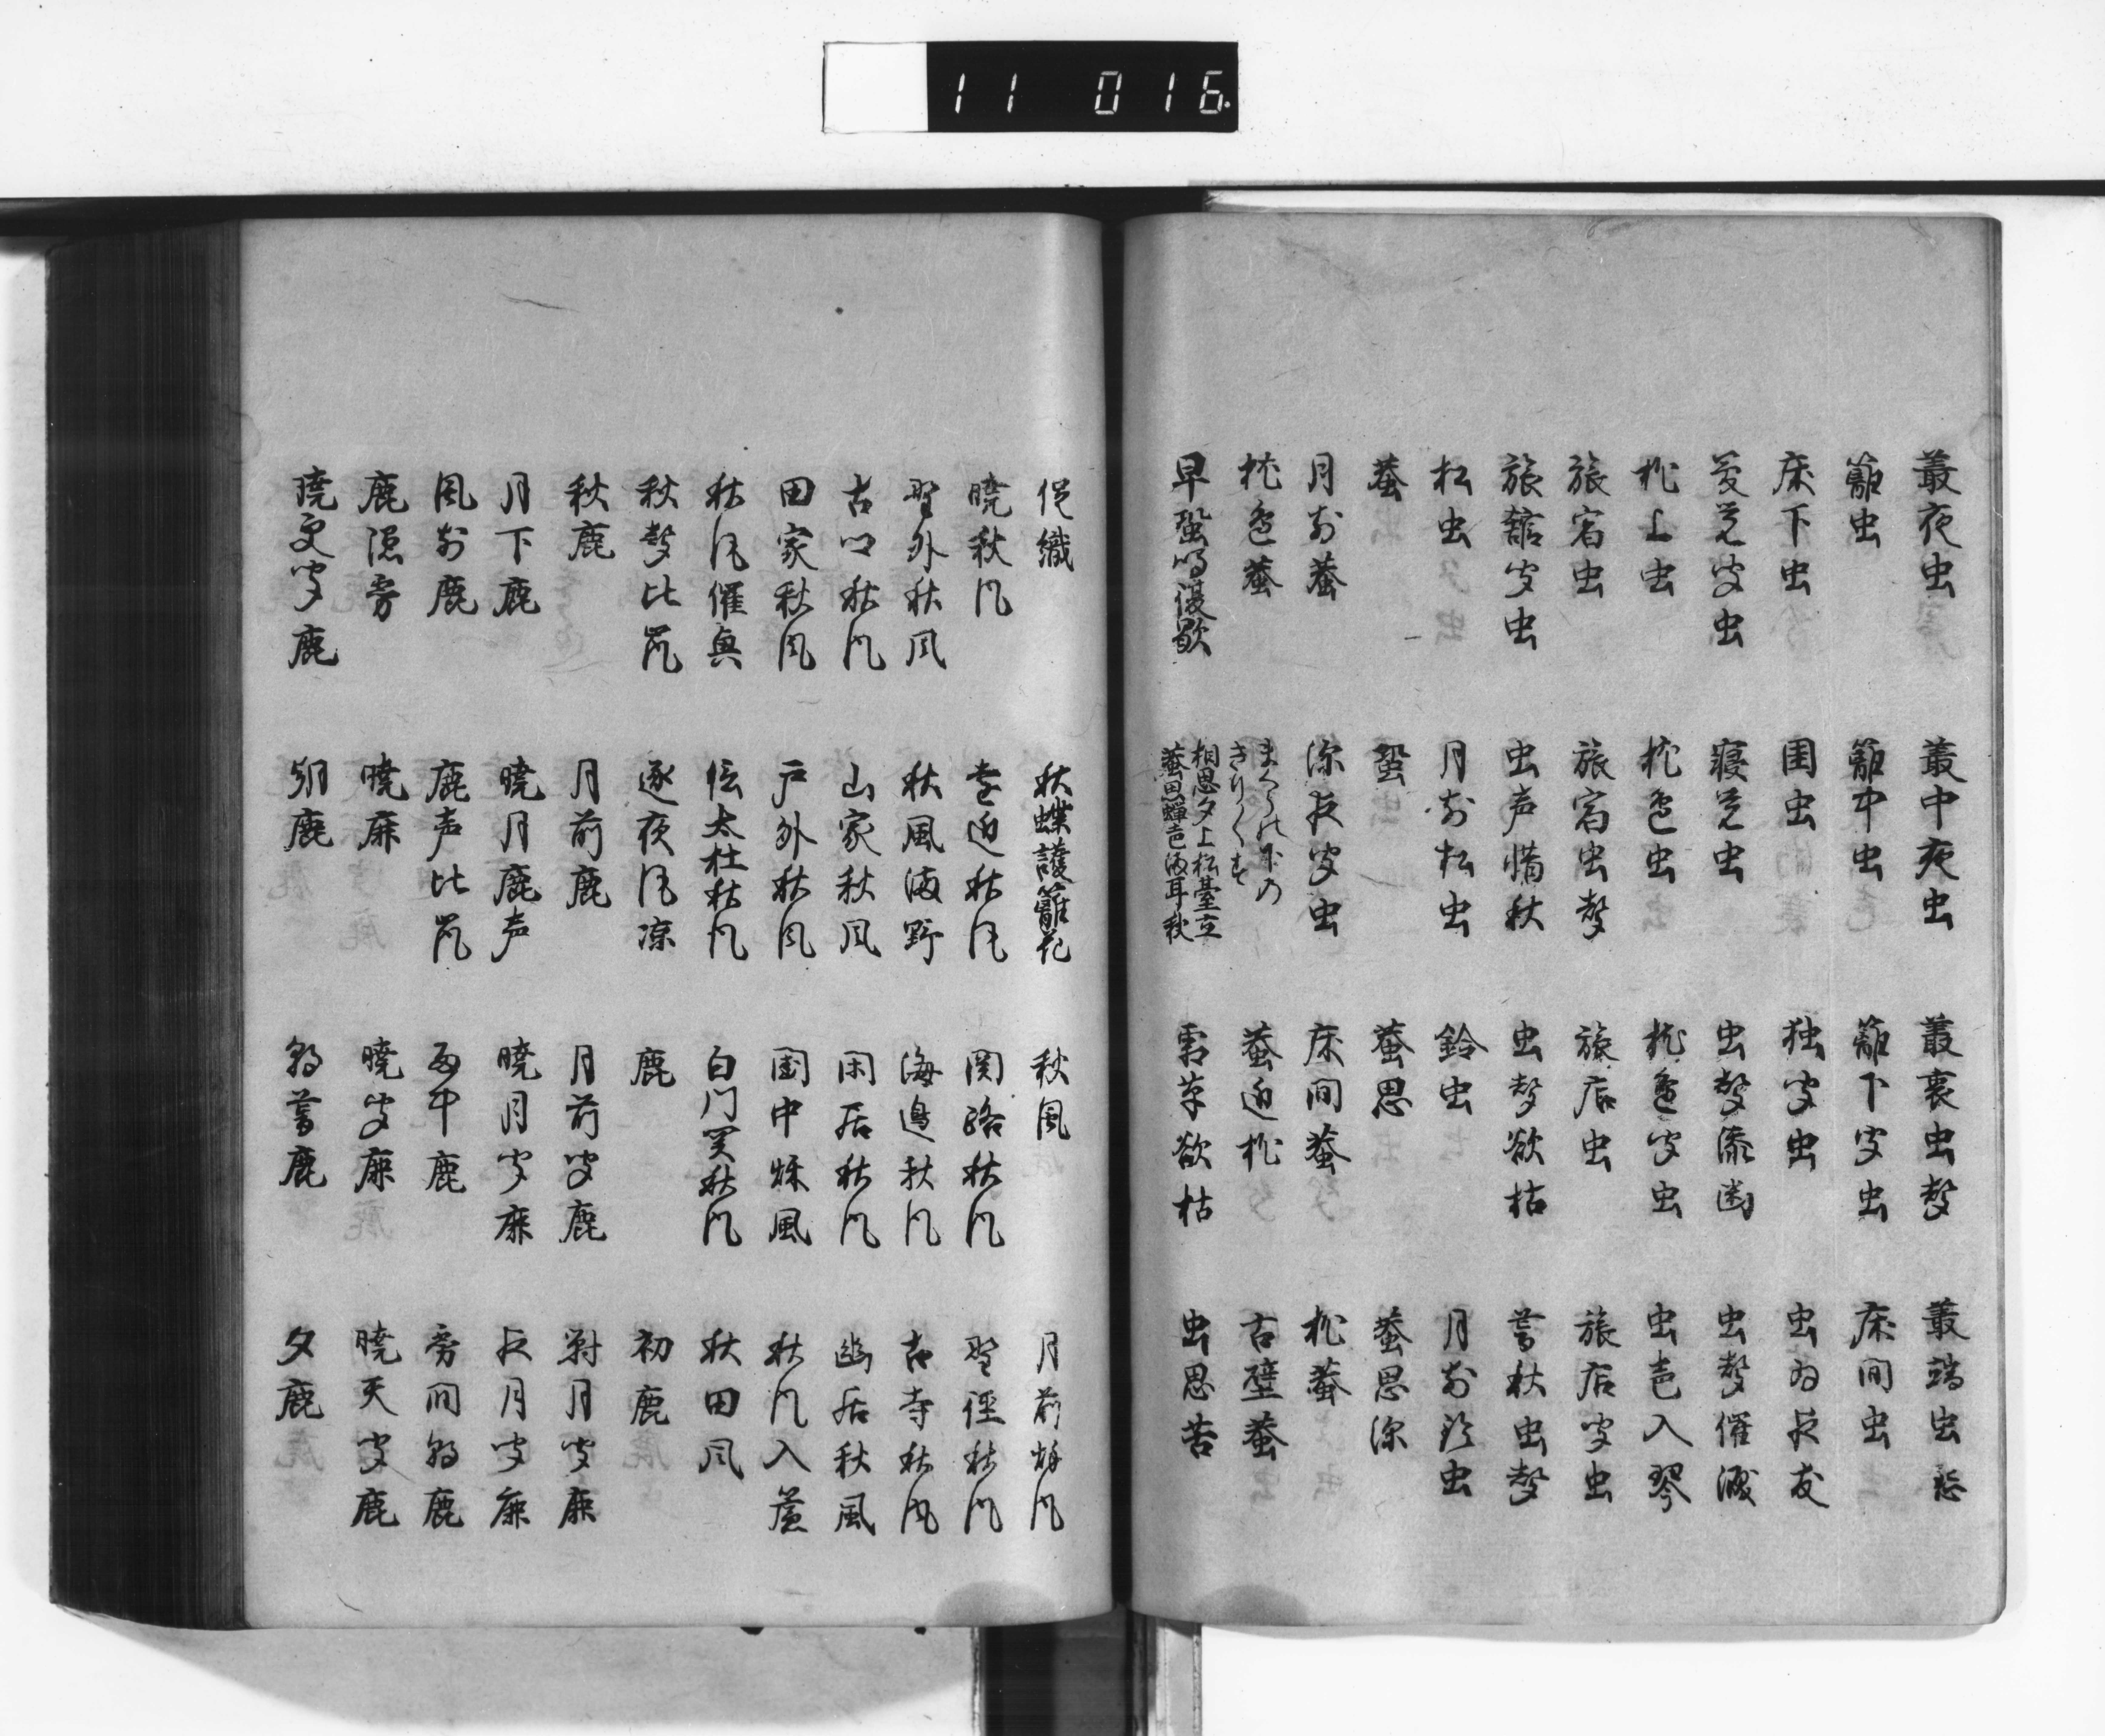 11 016
叢夜虫 叢中夜虫 叢裏虫声 叢端虫怨
籬虫 籬中虫 籬下聞虫 床間虫
床下虫 閨虫 独聞虫 虫為夜友
夢覚聞虫 寝覚虫 虫声添閑 虫声催涙
枕上虫 枕辺虫 枕辺聞虫 虫声入琴
旅宿虫 旅宿虫声 旅店虫 旅店聞虫
旅館聞虫 虫声惜秋 虫声欲枯 暮秋虫声
松虫 月前松虫 鈴虫 月前鈴虫
蛬 蛩 蛬思 蛬思深
月前蛬 深夜聞虫 床間蛬 枕蛬
枕辺蛬 まくらの下のきりぎりす 蛬近枕 古壁蛬
早蛩鳴復歇 相思夕上松台立蛬思蝉声満耳秋 霜草欲枯 虫思苦
促織 秋蝶護籬花 秋風 月前秋風
暁秋風 遠近秋風 関路秋風 野径秋風
野外秋風 秋風満野 海辺秋風 古寺秋風
古郷秋風 山家秋風 閑居秋風 幽居秋風
田家秋風 戸外秋風 園中秋風 秋風入簾
秋風催興 信太杜秋風 白川関秋風 秋田風
秋声比興 逐夜風涼 鹿 初鹿
秋鹿 月前鹿 月前聞鹿 対月聞鹿
月下鹿 暁月鹿声 暁月聞鹿 夜月聞鹿
風前鹿 鹿声比興 雨中鹿 霧間朝鹿
鹿隠霧 暁鹿 暁聞鹿 暁天聞鹿
暁更聞鹿 朝鹿 朝暮鹿 夕鹿